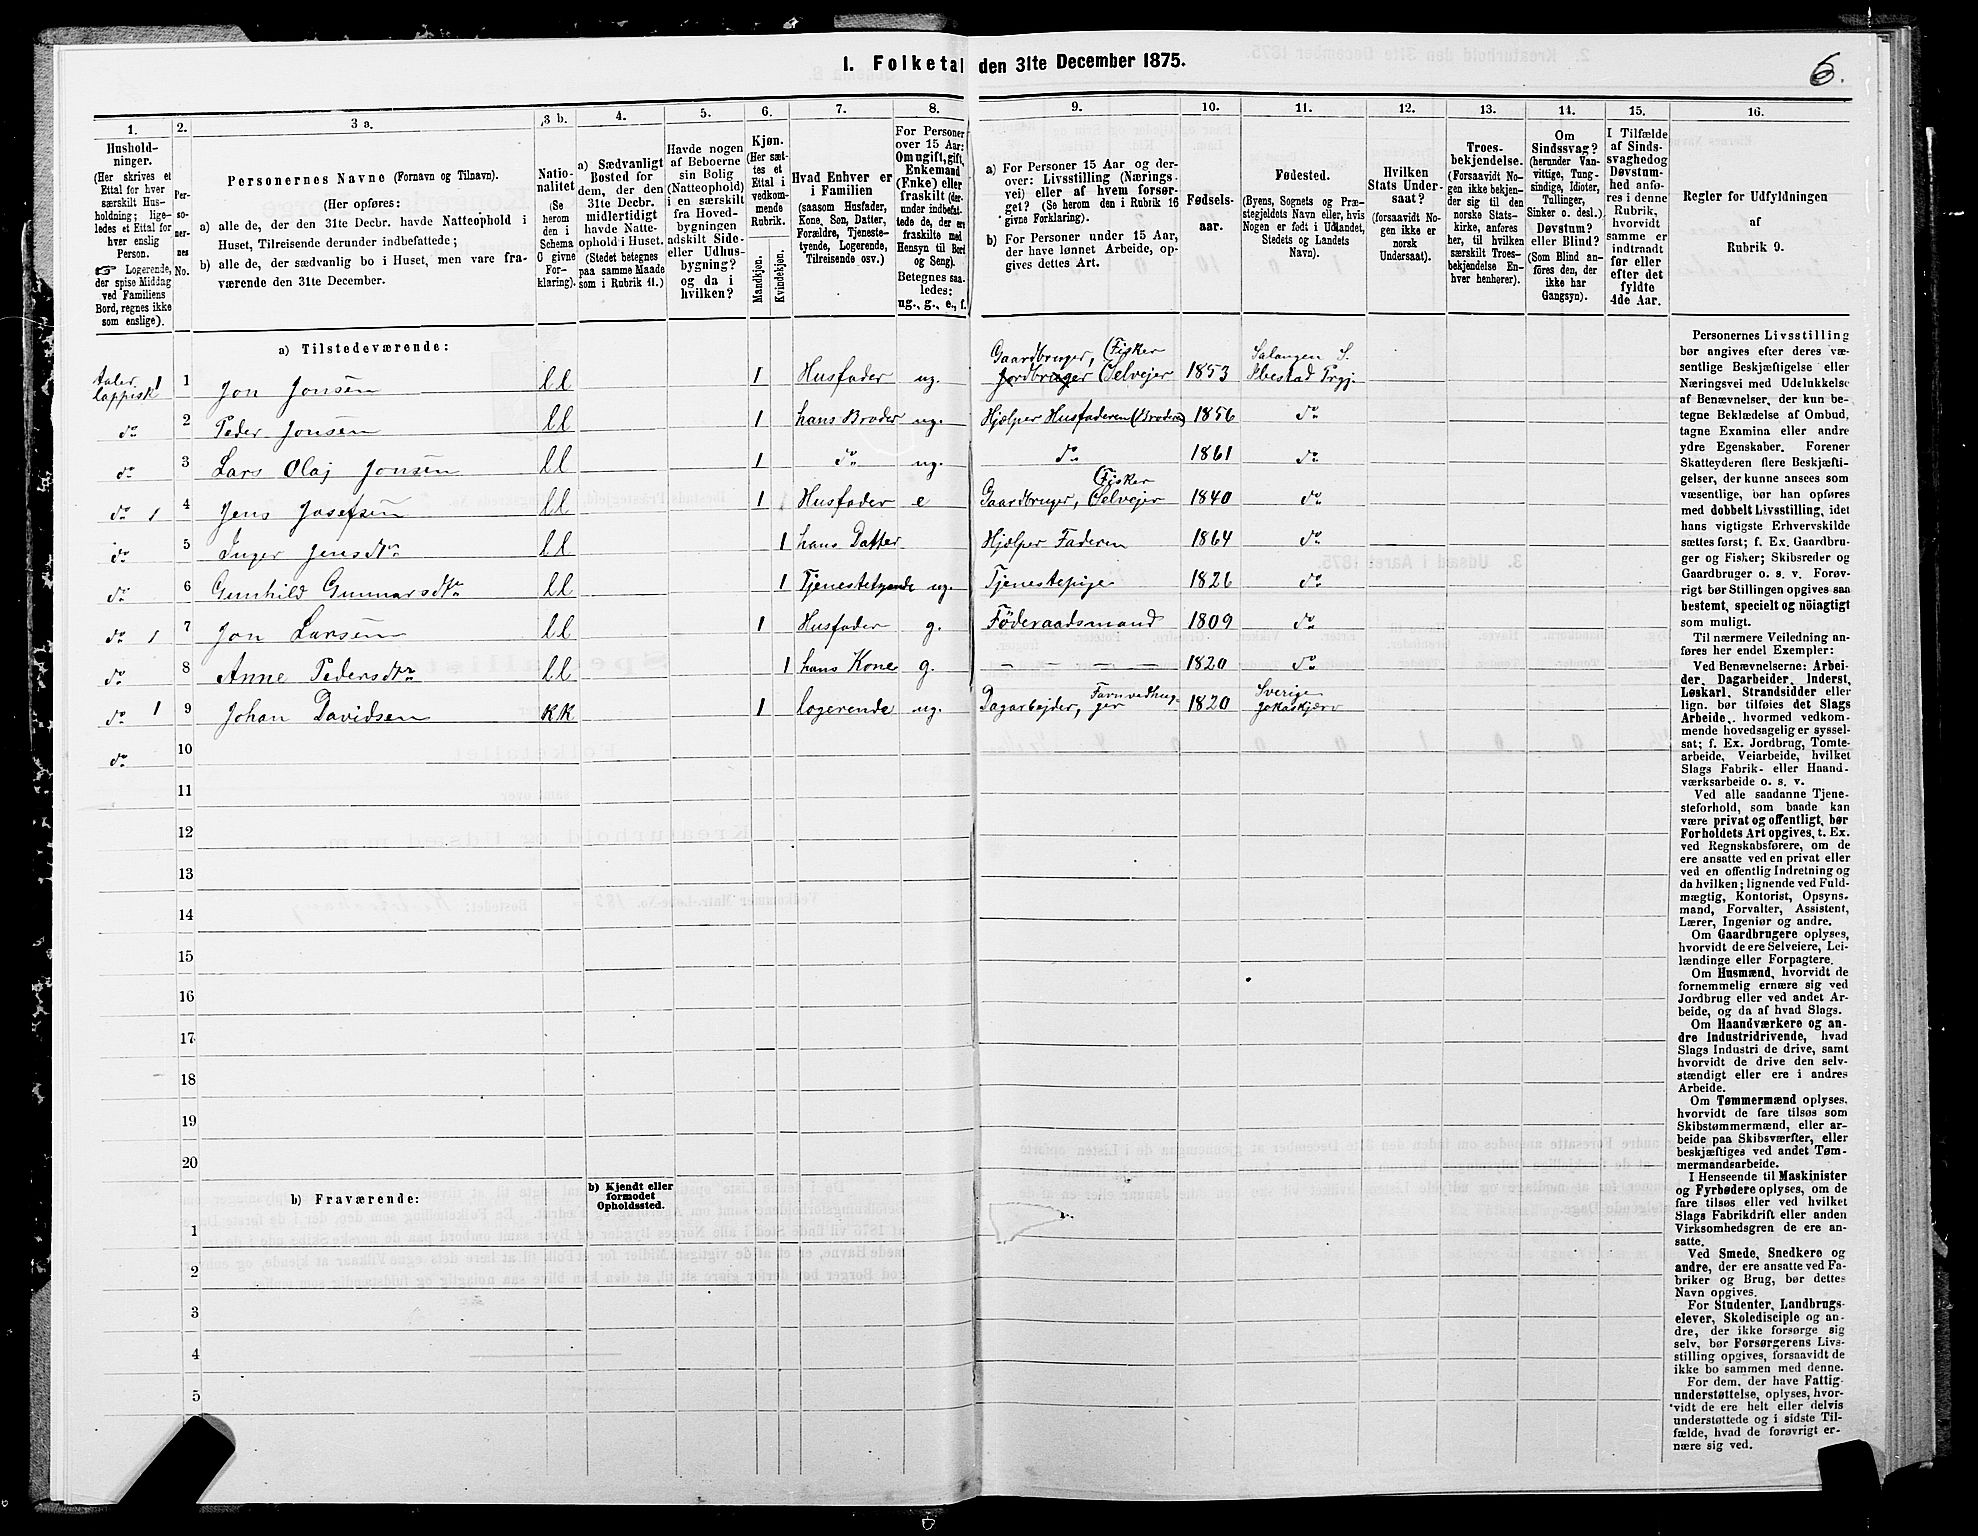 1. Folketal den 31te December 1875.
6.
1.
Husholdninger.
(Her skrives et
Ettal for hver
særskilt Husholdning; ligeledes et Ettal for
hver enslig
Person.
☞ Logerende,
der spise Middag
ved Familiens
Bord, regnes ikke
som enslige).
2.
Personernes
No.
3 a.
Personernes Navne (Fornavn og Tilnavn).
(Her opføres:
a) alle de, der den 31te Decbr. havde Natteophold i
Huset, Tilreisende derunder indbefattede;
b) alle de, der sædvanlig bo i Huset, men vare fraværende den 31te December.
3 b.
Nationalitet
(Se
herom
den i
Schema
O givne
Forklaring).
4.
a) Sædvanligt
Bosted for
dem, der den
31te Decbr.
midlertidigt
havde Natteophold i Huset.
(Stedet betegnes
paa samme Maade
som i Rubrik 11.)
5.
Havde nogen
af Beboerne
sin Bolig
(Natteophold)
i en særskilt
fra Hovedbygningen
adskilt Sideeller Udhusbygning?
og da i
hvilken?
6.
Kjøn.
(Her sættes et
Ettal i
vedkommende
Rubrik.
Mandkjøn.
Kvindekjøn.
7.
Hvad Enhver er
i Familien
(saasom Husfader,
Kone, Søn, Datter,
Forældre, Tjenestetyende, Logerende,
Tilreisende osv.)
8.
For Personer
over 15 Aar:
Om ugift, gift,
Enkemand
(Enke) eller
fraskilt (derunder indbefattede de, der ere
fraskilte med
Hensyn til Bord
og Seng).
Betegnes saaledes:
ug., g., e., f.
9.
a) For Personer 15 Aar og derover: Livsstilling (Næringsvei) eller af hvem forsørget? (Se herom den i Rubrik 16
givne Forklaring).
b) For Personer under 15 Aar,
der have lønnet Arbeide, opgives dettes Art.
10.
Fødselsaar.
11.
Fødested.
(Byens, Sognets og Præstegjeldets Navn eller, hvis
Nogen er født i Udlandet,
Stedets og Landets
Navn).
12.
Hvilken
Stats Undersaat?
(forsaavidt Nogen ikke er
norsk
Undersaat).
13.
Troesbekjendelse.
(Forsaavidt Nogen ikke bekjender sig til den
norske Statskirke, anføres
her, til hvilken
særskilt Troesbekjendelse Enhver henhører).
14.
Om
Sindssvag?
(herunder Vanvittige, Tungsindige, Idioter,
Tullinger,
Sinker o. desl.).
Døvstum?
eller Blind?
(Som Blind anføres den, der
ikke har
Gangsyn).
15.
I Tilfælde
af Sindssvaghed og
Døvstumhed anføres i denne
Rubrik,
hvorvidt
samme er
indtraadt
før eller
efter det
fyldte
4de Aar.
16.
Regler for Udfyldningen
af
Rubrik 9.
a) Tilstedeværende:
taler lappisk 1 1 Jon Jonsen ll 1 Husfader ug. Gaardbruger, (Fisker Selvejer 1853 Salangen S. Ibestad Prgj.
do 2 Peder Jonsen ll 1 hans Broder ug. Hjælper Husfaderen (Broderen) 1856 do
do 3 Lars Olaj Jonsen ll 1 do ug. do 1861 do
do 1 4 Jens Josefsen ll 1 Husfader e Gaardbruger, (Fisker Selvejer 1840 do
do 5 Inger Jensdtr ll 1 hans Datter Hjælper Faderen 1864 do
do 6 Gunhild Gunnarsdtr ll 1 Tjenestetyende ug. Tjenestepige 1826 do
do 1 7 Jon Larsen ll 1 Husfader g. Föderaadsmand 1809 do
do 8 Anne Pedersdtr ll 1 hans Kone g. — — — — 1820 do
do 1 9 Johan Davidsen kk 1 logerende ug. Dagarbejder, 1820 Sverige
do 10
11
12
13
14
15
16
17
18
19
20
b) Fraværende:
b) Kjendt eller
formodet
Opholdssted.
1
2
3
4
5
Personernes Livsstilling
bør angives efter deres væsentlige Beskjæftigelse eller
Næringsvei med Udelukkelse
af Benævnelser, der kun betegne Beklædelse af Ombud,
tagne Examina eller andre
ydre Egenskaber. Forener
Skatteyderen flere Beskjæftigelser, der kunne ansees som
væsentlige, bør han opføres
med dobbelt Livsstilling, idet
hans vigtigste Erhvervskilde
sættes først; f. Ex. Gaardbruger og Fisker; Skibsreder og
Gaardbruger o. s. v. Forøvrigt bør Stillingen opgives saa
bestemt, specielt og nöiagtigt
som muligt.
Til nærmere Veiledning anføres her endel Exempler:
Ved Benævnelserne: Arbeider, Dagarbeider, Inderst,
Løskarl, Strandsidder eller
lign. bør tilføies det Slags
Arbeide, hvormed vedkommende hovedsagelig er sysselsat; f. Ex. Jordbrug, Tomtearbeide, Veiarbeide, hvilket
Slags Fabrik- eller Haandværksarbeide o. s. v.
Ved alle saadanne Tjenesteforhold, som baade kan
være privat og offentligt, bør
Forholdets Art opgives, t. Ex.
ved Regnskabsførere, om de
ere ansatte ved en privat eller
ved en offentlig Indretning og
da hvilken; lignende ved Fuldmægtig, Kontorist, Opsynsmand, Forvalter, Assistent,
Lærer, Ingeniør og andre.
Om Gaardbrugere oplyses,
hvorvidt de ere Selveiere, Leilændinge eller Forpagtere.
Om Husmænd, hvorvidt de
fornemmelig ernære sig ved
Jordbrug eller ved andet Arbeide, og da af hvad Slags.
Om Haandværkere og andre Industridrivende, hvad
Slags Industri de drive, samt
hvorvidt de drive den selvstændigt eller ere i andres
Arbeide.
Om Tømmermænd oplyses,
hvorvidt de fare tilsøs som
Skibstømmermænd, eller arbeide paa Skibsværfter, eller
beskjæftiges ved andet Tømmermandsarbeide.
I Henseende til Maskinister
og Fyrbødere oplyses, om de
fare tilsøs eller ved hvilket
Slags Fabrikdrift eller anden
Virksomhedsgren de ere ansatte.
Ved Smede, Snedkere og
andre, der ere ansatte ved Fabriker og Brug, bør dettes
Navn opgives.
For Studenter, Landbrugselever, Skoledisciple og andre, der ikke forsørge sig
selv, bør Forsørgerens Livsstilling opgives, forsaavidt de
ikke bo sammen med denne.
For dem, der have Fattigunderstøttelse, oplyses, hvorvidt de ere helt eller delvis
understøttede og i sidste Tilfælde, hvad de forøvrigt ernære sig ved.